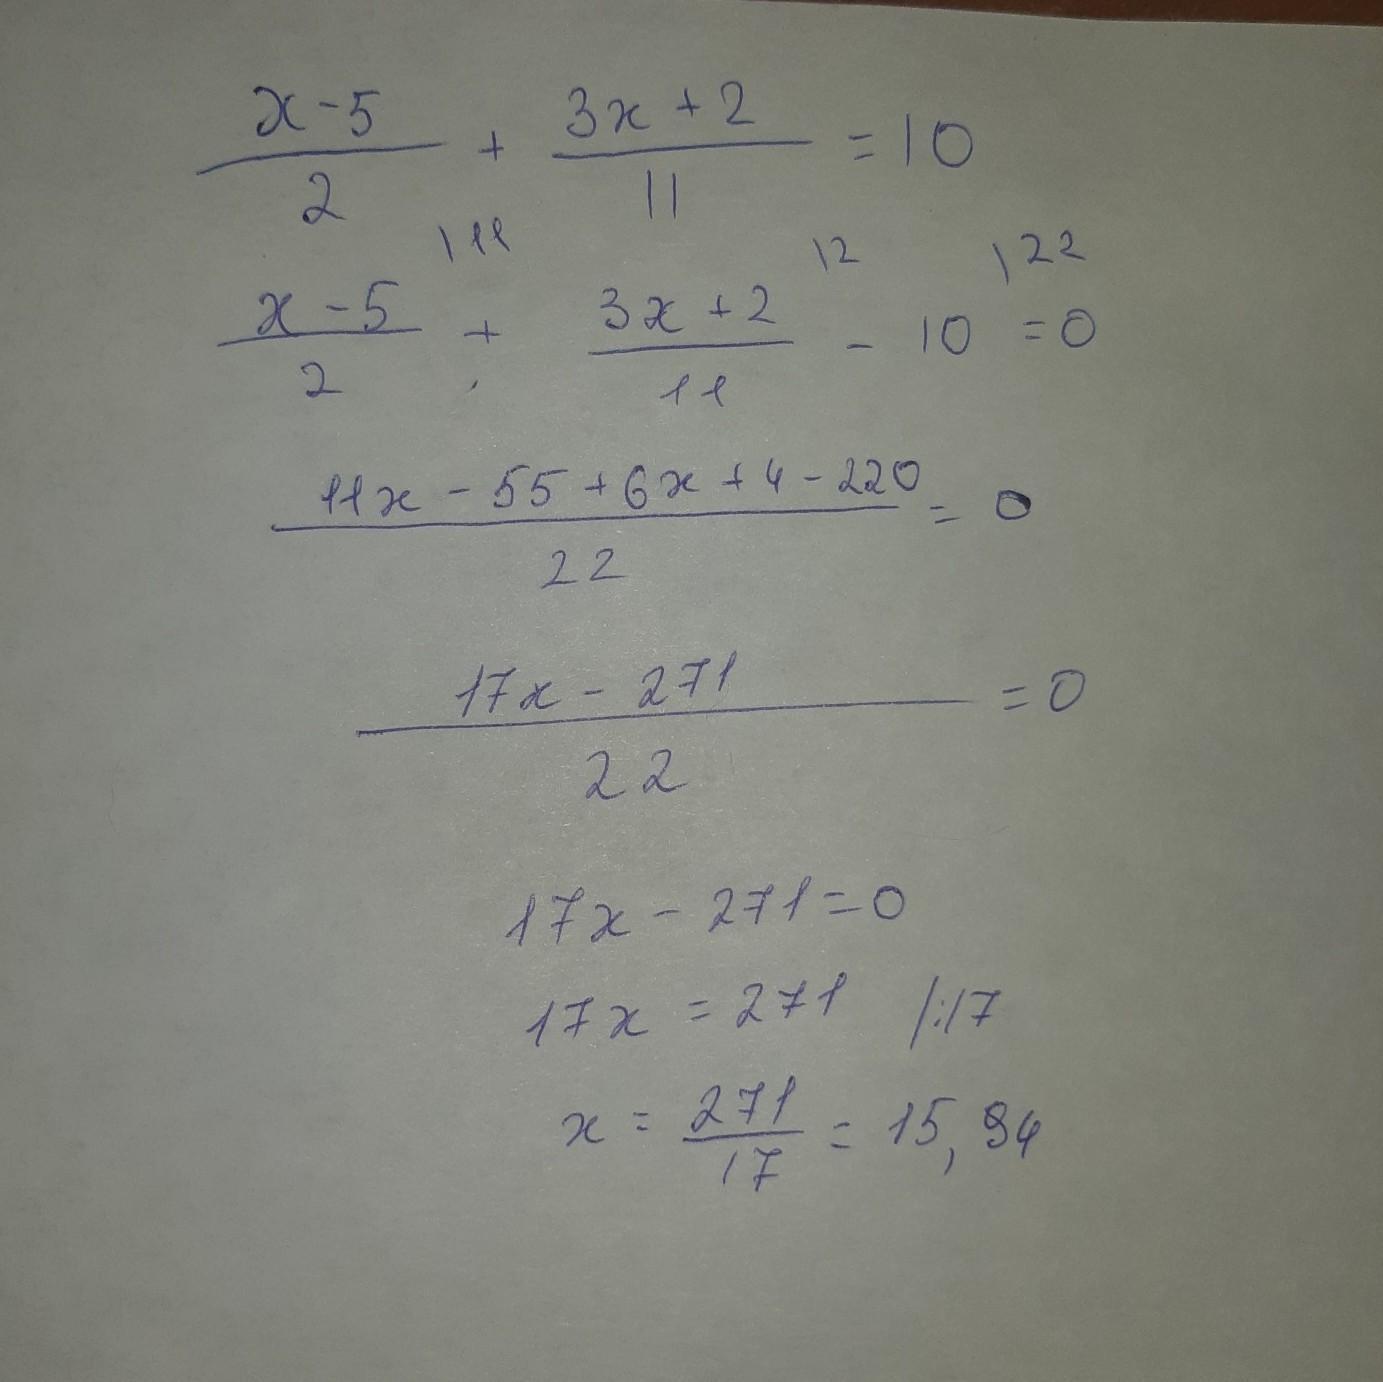 x-5/2 + 3x+2/11 = 10
x-5/2 \11 + 3x+2/11 \2 - 10 \22 = 0
11x - 55 + 6x + 4 - 220/22 = 0
17x - 271/22 = 0
17x - 271 = 0
17x = 271 /:17
x = 271/17 = 15,94